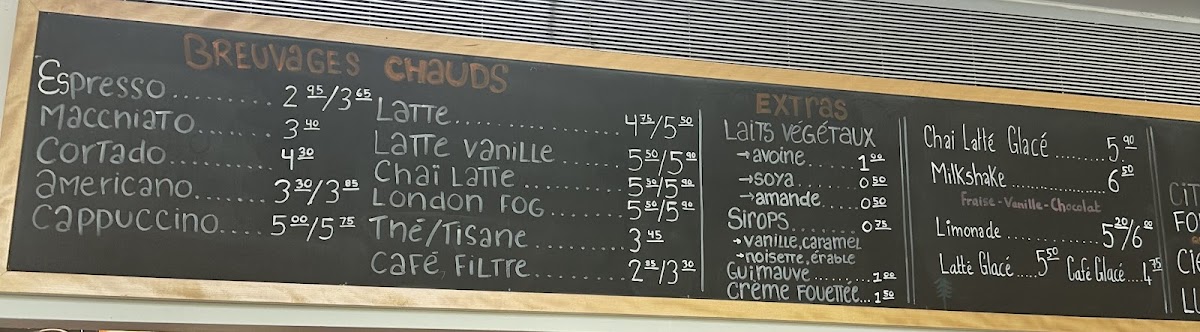 BREUVAGES CHAUDS
Espresso......... 2 95/3 65
Macchiato....... 3 40
Cortado......... 4 30
americano....... 3 30/3 85
Cappuccino..... 5 00/5 75
Latte................. 4 75/5 50
Latte vanille ...... 5 50/5 90
Chai Latte ......... 5 50/5 90
London Fog ....... 5 50/5 90
Thé/Tisane ......... 3 45
Café Filtre......... 2 85/3 30
Extras
Laits végétaux
→avoine...... 1 00
→soya ....... 0 50
→amande.... 0 50
Sirops....... 0 75
→vanille, caramel
→noisette, érable
Guimauve...... 1 00
Crème Fouettée... 1 50
Chai Latté Glacé ........ 5 90
Milkshake............ 6 50
Fraise-Vanille-Chocolat
Limonade ............ 5 20/6 00
Latté Glacé.....5 50 Café Glacé....4 75